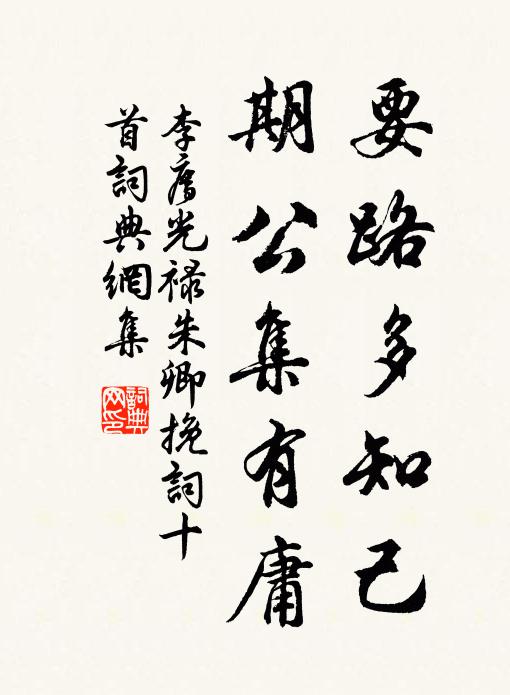 要路多知己
期公集有庸
李廌光禄朱卿挽詞十
首詞典網集
詞典
网印